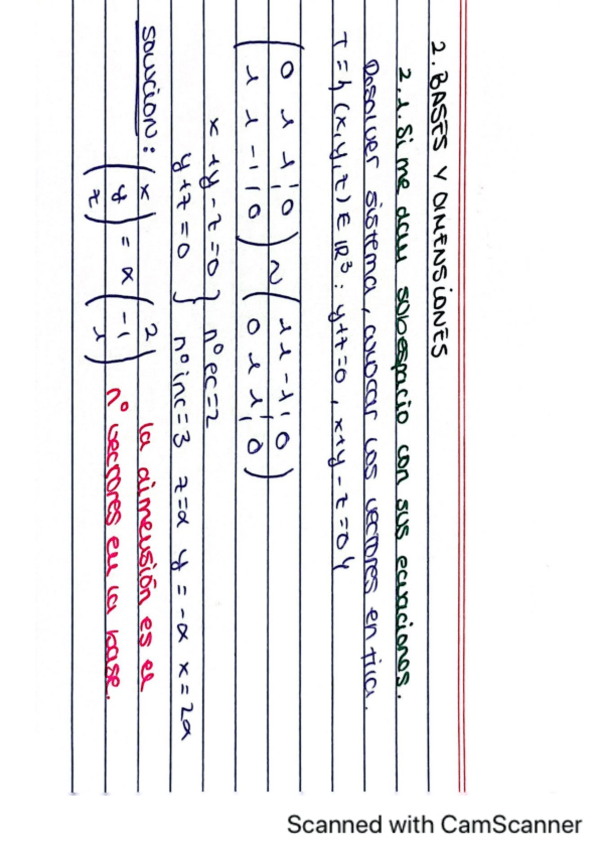 2. BASES Y DIMENSIONES
2.1. Si me dan subespacio con sus ecuaciones.
Resolver sistema, colocar los vectores en fila.
T = { (x,y,z) ∈ ℝ³ : y+z=0, x+y-z=0 }
( 0 1 1 | 0 ) ~ ( 1 1 -1 | 0 )
( 1 1 -1 | 0 ) ( 0 1 1 | 0 )
x+y-z=0 } nº ec=2
y+z=0 } nº inc=3 z=α y=-α x=2α
Solución: (x y z) = α (2 -1 1) la dimensión es el
nº vectores en la base.
Scanned with CamScanner